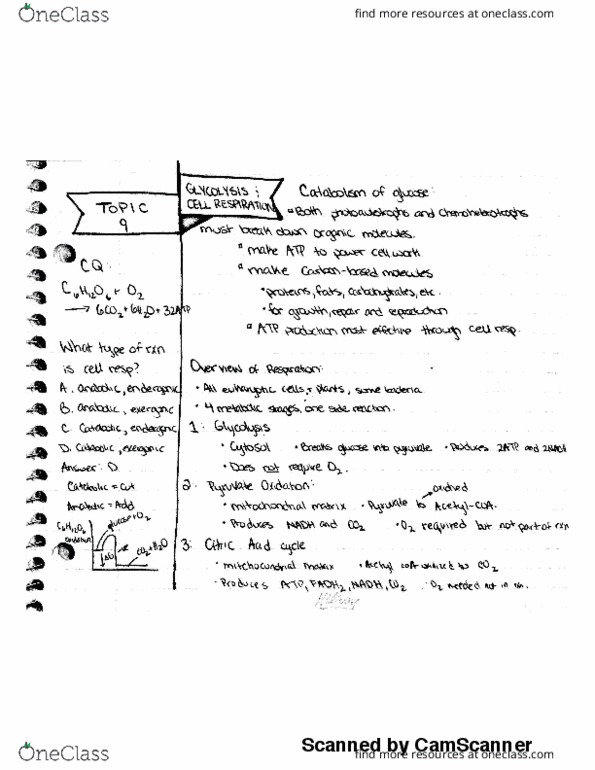 OneClass
find more resources at oneclass.com
TOPIC
9
GLYCOLYSIS ;
CELL RESPIRATION
Catabolism of glucose:
Both photoautotrophs and Chemoheterotrophs
must break down organic molecules.
make ATP to power cell work
make Carbon-based molecules
• proteins, fats, carbohydrates, etc.
• for growth, repair and reproduction
ATP production most effective through cell resp.
CQ:
C6H12O6 + O2
→ 6CO2 + 6H2O + 32ATP
What type of rxn
is cell resp?
A. anabolic, endergonic
B. anabolic, exergonic
C. Catabolic, endergonic
D. Catabolic, exergonic
Answer: D
Catabolic = Cut
Anabolic = Add
C6H12O2
glucose + O2
ΔG
CO2 + H2O
Overview of Respiration:
• All eukaryotic cells, plants, some bacteria
• 4 metabolic stages, one side reaction.
1: Glycolysis
• Cytosol • Breaks glucose into pyruvate • Produces 2ATP and 2NADH
• Does not require O2.
2. Pyruvate Oxidation:
oxidized
• mitochondrial matrix • Pyruvate to Acetyl-CoA.
• Produces NADH and CO2 • O2 required but not part of rxn
3: Citric Acid cycle
• mitochondrial matrix • Acetyl coA oxidized to CO2
• Produces ATP, FADH2, NADH, CO2 • O2 needed not in rxn.
Scanned by CamScanner
OneClass
find more resources at oneclass.com